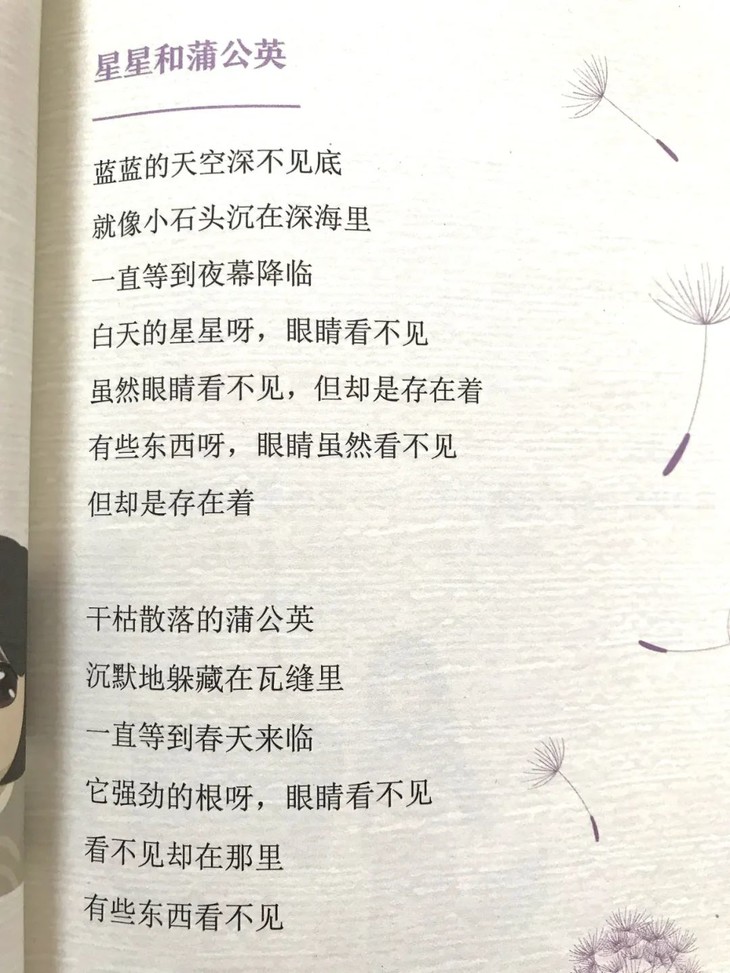 星星和蒲公英
蓝蓝的天空深不见底
就像小石头沉在深海里
一直等到夜幕降临
白天的星星呀，眼睛看不见
虽然眼睛看不见，但却是存在着
有些东西呀，眼睛虽然看不见
但却是存在着
干枯散落的蒲公英
沉默地躲藏在瓦缝里
一直等到春天来临
它强劲的根呀，眼睛看不见
看不见却在那里
有些东西看不见